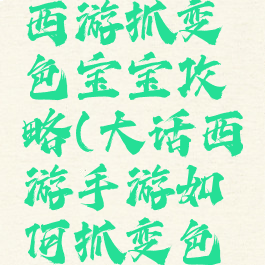 西游抓变
色宝宝攻
略(大话西
游手游如
何抓变色